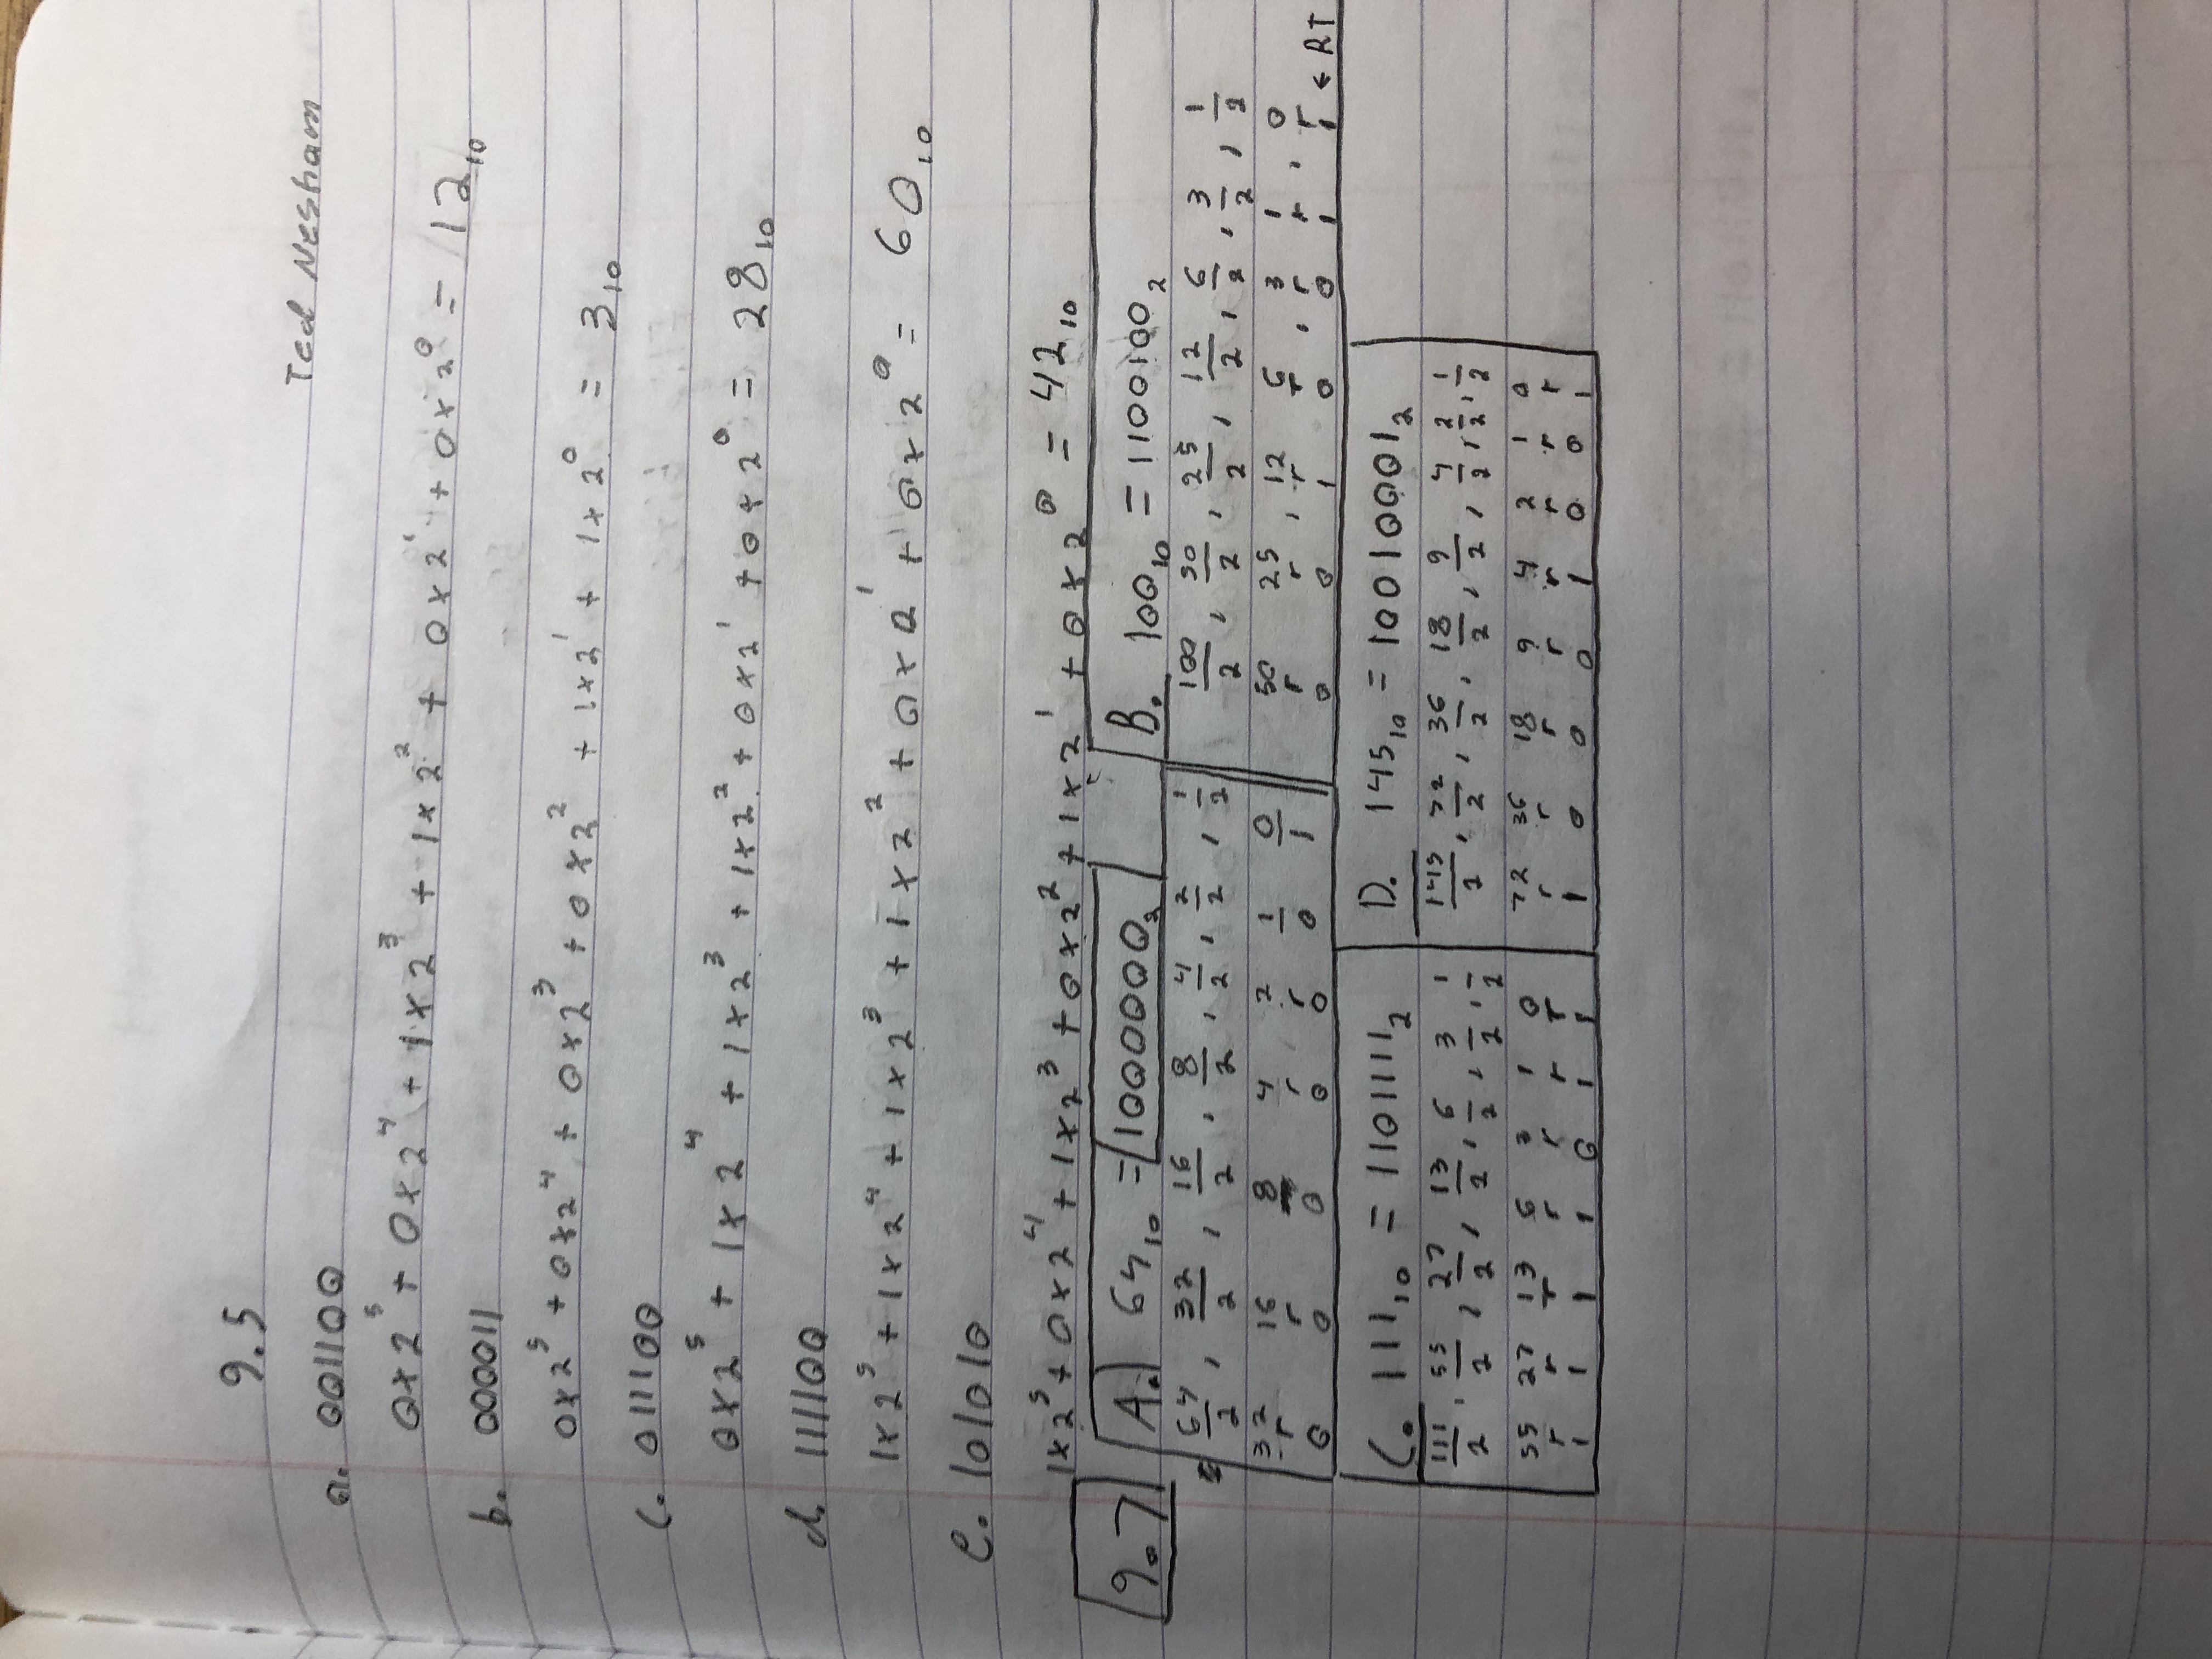 9.5
Ted Nesham
a. 001100
0×2⁵ + 0×2⁴ + 1×2³ + 1×2² + 0×2¹ + 0×2⁰ = 12₁₀
b. 000011
0×2⁵ + 0×2⁴ + 0×2³ + 0×2² + 1×2¹ + 1×2⁰ = 3₁₀
c. 011100
0×2⁵ + 1×2⁴ + 1×2³ + 1×2² + 0×2¹ + 0×2⁰ = 28₁₀
d. 111100
1×2⁵ + 1×2⁴ + 1×2³ + 1×2² + 0×2¹ + 0×2⁰ = 60₁₀
e. 101010
1×2⁵ + 0×2⁴ + 1×2³ + 0×2² + 1×2¹ + 0×2⁰ = 42₁₀
9.7
A. 64₁₀ = 1000000₂
64/2, 32/2, 16/2, 8/2, 4/2, 2/2, 1/2
32 16 8 4 2 1 0
r r r r
0 0 0 0 0 0 1
B. 100₁₀ = 1100100₂
100/2, 50/2, 25/2, 12/2, 6/2, 3/2, 1/2
50 25 12 6 3 1 0
r r , r r , r r , r
0 0 1 0 0 1 1 ← RT
C. 111₁₀ = 1101111₂
111/2, 55/2, 27/2, 13/2, 6/2, 3/2, 1/2
55 27 13 6 3 1 0
r r r r r r r
1 1 1 1 0 1 1
D. 145₁₀ = 10010001₂
145/2, 72/2, 36/2, 18/2, 9/2, 4/2, 2/2, 1/2
72 36 18 9 4 2 1 0
r r r r r r r r
1 0 0 0 1 0 0 1